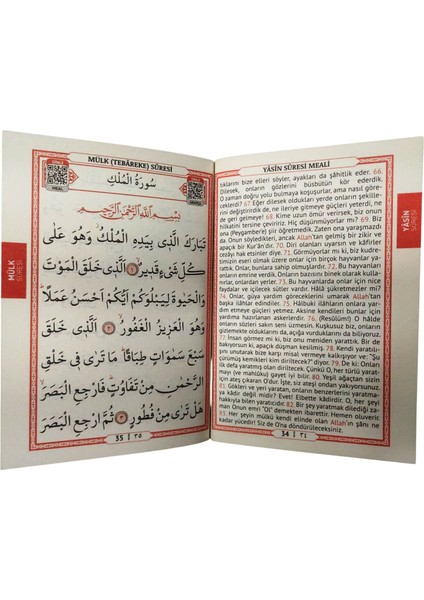 MÜLK (TEBÂREKE) SÛRESİ
سُورَةُ الْمُلْكِ
بِسْمِ اللّٰهِ الرَّحْمٰنِ الرَّحٖيمِ
تَبَارَكَ الَّذٖي بِيَدِهِ الْمُلْكُ وَهُوَ عَلٰى
كُلِّ شَيْءٍ قَدٖيرٌ ﴿١﴾ اَلَّذٖي خَلَقَ الْمَوْتَ
وَالْحَيٰوةَ لِيَبْلُوَكُمْ اَيُّكُمْ اَحْسَنُ عَمَلًا
وَهُوَ الْعَزٖيزُ الْغَفُورُ ﴿٢﴾ اَلَّذٖي خَلَقَ
سَبْعَ سَمٰوَاتٍ طِبَاقًا مَا تَرٰى فٖي خَلْقِ
الرَّحْمٰنِ مِنْ تَفَاوُتٍ فَارْجِعِ الْبَصَرَ
هَلْ تَرٰى مِنْ فُطُورٍ ﴿٣﴾ ثُمَّ ارْجِعِ الْبَصَرَ
35 | ٣٥
MÜLK
SÛRESİ
YÂSÎN SÛRESİ MEALİ
tıklarını bize elleri söyler, ayakları da şâhitlik eder. 66.
Dilesek, onların gözlerini büsbütün kör ederdik.
O zaman doğru yolu bulmaya koşuşurlar, ama nasıl göre-
cekler? 67. Eğer dilesek oldukları yerde onların şekille-
rini değiştirdik de, ne ileriye gitmeye güçleri yeterdi, ne
de geri gelmeye! 68. Kime uzun ömür verirsek, biz onun
hilkatini tersine çeviririz. Hiç düşünmüyorlar mı? 69. Biz
ona (Peygambere) şiir öğretmedik. Zaten ona yaraşmazdı
da. Onun söyledikleri, ancak Allah'tan gelmiş bir zikir ve
apaçık bir Kur'andır. 70. Diri olanları uyarsın ve kâfirler
cezâyı hak etsinler diye. 71. Görmüyorlar mı ki, biz kudre-
timizin eseri olmak üzere onlar için birçok hayvanlar ya-
rattık. Onlar, bunlara sahip olmuşlardır. 72. Bu hayvanları
onların emrine verdik. Onların bazısını binek olarak kulla-
nırlar, onlardan yerler. 73. Bu hayvanlarda onlar için nice
faydalar ve içilecek sütler vardır. Hâlâ şükretmezler mi?
74. Onlar, güya yardım göreceklerini umarak Allah'tan
başka ilâhlar edindiler. 75. Hâlbuki ilâhların onlara yar-
dım etmeye güçleri yetmez. Aksine kendileri bunlar için
yardıma hazırlanan askerlerdir. 76. (Resûlüm!) O hâlde
onların sözleri sakın seni üzmesin. Kuşkusuz biz, onların
gizlemekte olduklarını da açığa vurduklarını da biliyoruz.
77. İnsan görmez mi ki, biz onu meniden yarattık. Bir de
bakıyorsun ki, apaçık düşman kesilmiş. 78. Kendi yaratılı-
şını unutarak bize karşı misal vermeye kalkışıyor ve: "Şu
çürümüş kemikleri kim diriltecek?" diyor. 79. De ki: Onları ilk
defa yaratmış olan diriltecek. Çünkü O, her türlü yarat-
mayı (ve mahlûku) gayet iyi bilir. 80. Yeşil ağaçtan sizin
için ateş çıkaran O'dur. İşte, siz ateşi ondan yakıyorsunuz.
81. Gökleri ve yeri yaratan, onların benzerlerini yaratma-
ya kadir değil midir? Evet! Elbette kâdirdir. O, her şeyi
hakkıyla bilen yaratıcıdır. 82. Bir şey yaratmak dilediği za-
man Onun emri "Ol" demekten ibarettir. Hemen oluverir.
83. Her şeyin mülkü kendi elinde olan Allah'ın şânı ne
kadar yücedir! Siz de O'na döndürüleceksiniz.
34 | ٣٤
YÂSÎN
SÛRESİ